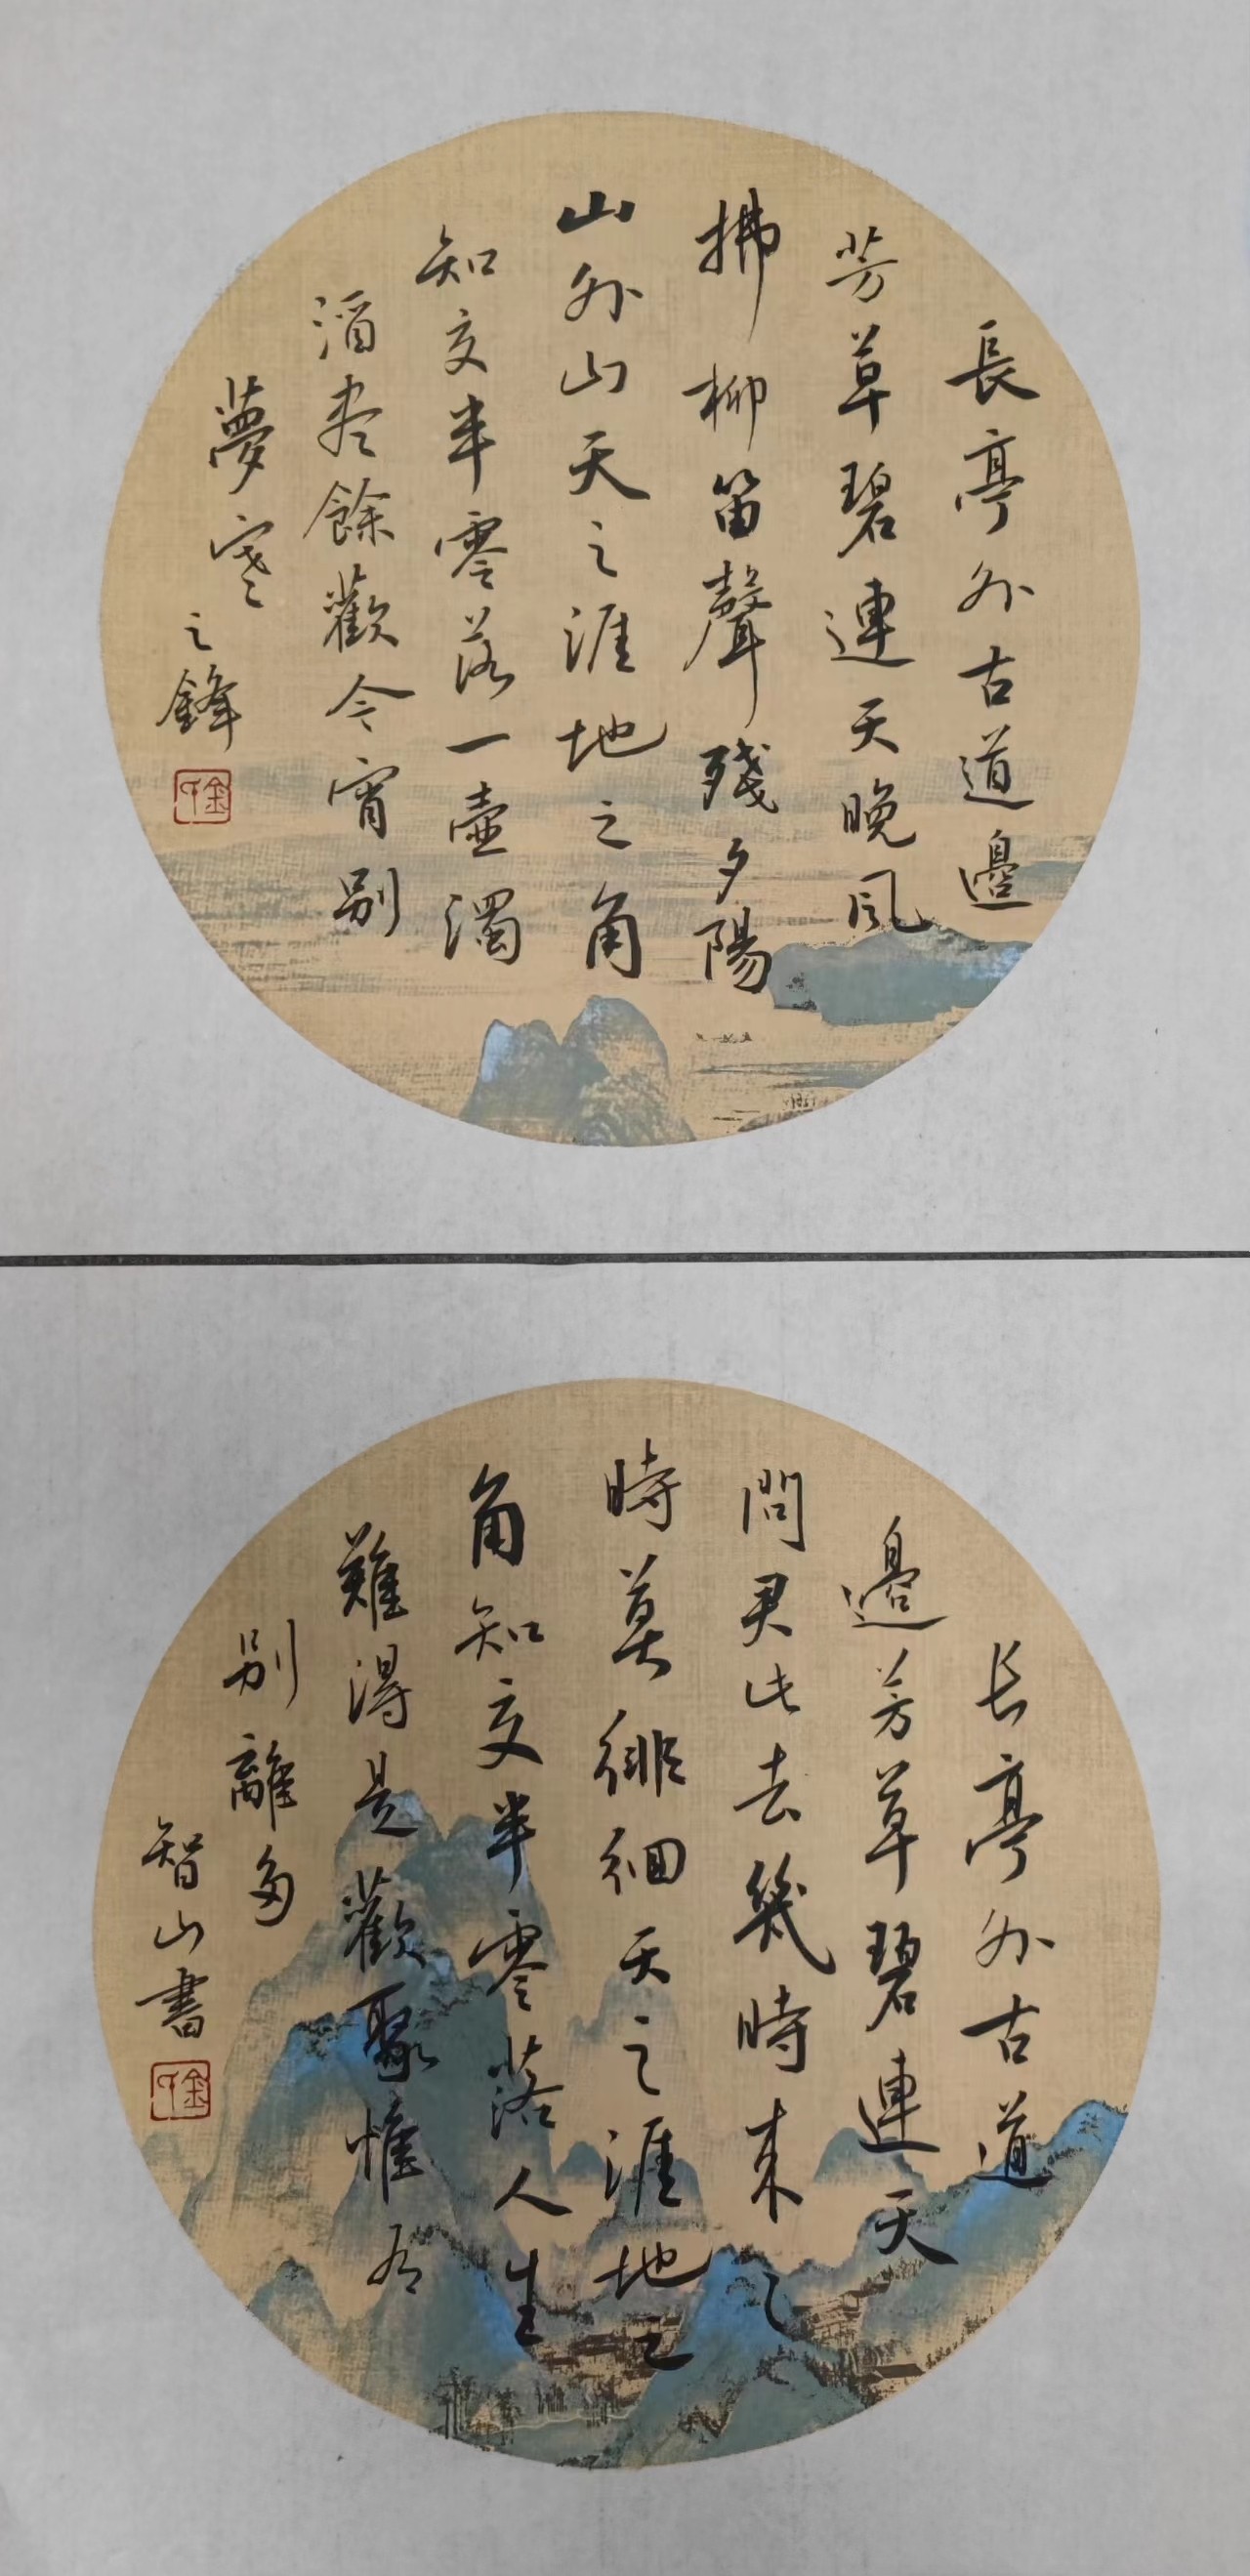 長亭外古道邊
芳草碧連天晚風
拂柳笛聲殘夕陽
山外山天之涯地之角
知交半零落一壺濁
酒盡餘歡今宵別
夢寒
之鋒
长亭外古道
邊芳草碧連天
問君此去幾時来之
時莫徘徊天之涯地之
角知交半零落人生
難得是歡聚惟有
別離多
智山書